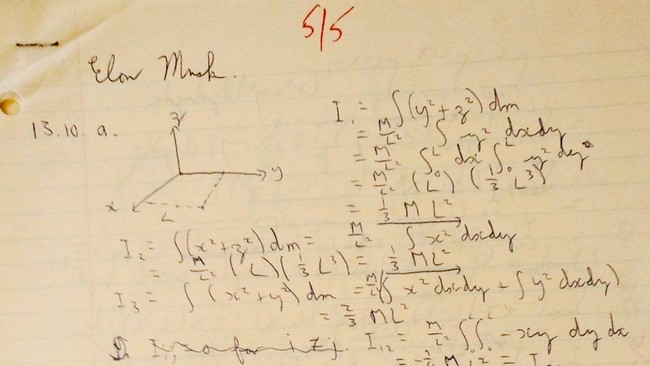 5/5
Elon Musk.
13.10. a.
z
y
x
L
I₁ = ∫(y²+z²) dm
= M/L² ∫ y² dxdy
= M/L² ∫₀ᴸ dx ∫₀ᴸ y² dy
= M/L² (L) (1/3 L³)
= 1/3 ML²
I₂ = ∫(x²+z²) dm = M/L² ∫ x² dxdy
= M/L² (L)(1/3 L³) = 1/3 ML²
I₃ = ∫(x²+y²) dm = M/L² (∫ x² dxdy + ∫ y² dxdy)
= 2/3 ML²
I₁₂ = M/L² ∫∫ -xy dy dx